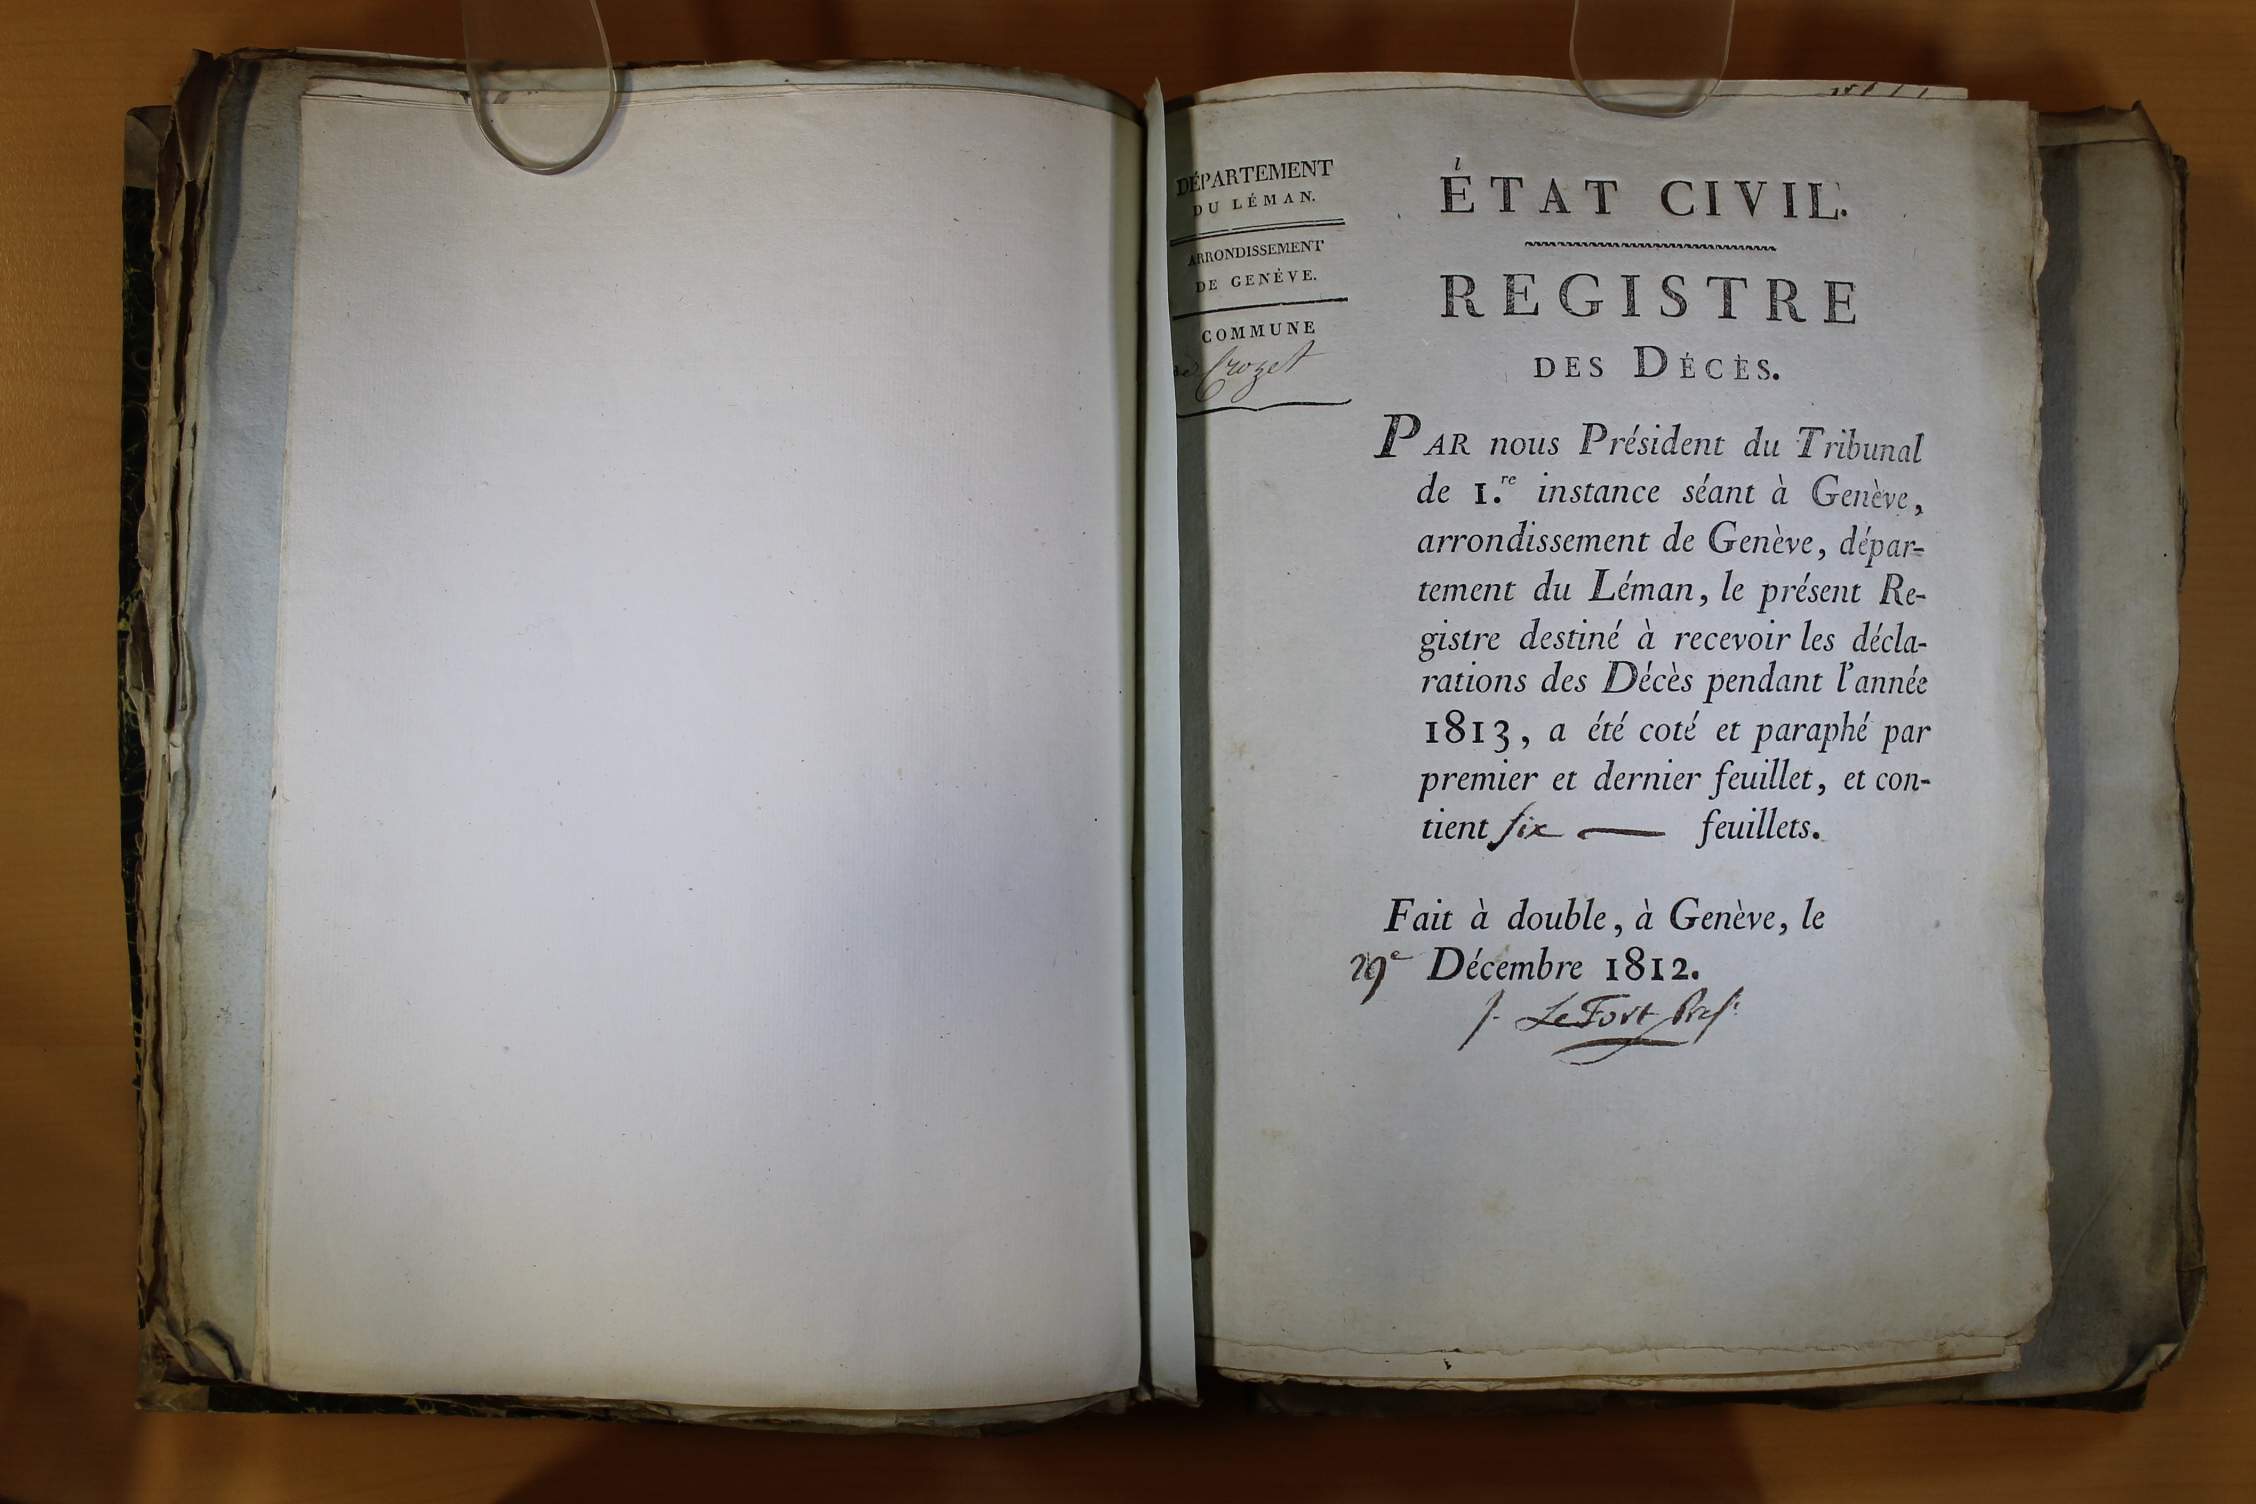 DÉPARTEMENT
DU LÉMAN.
ARRONDISSEMENT
DE GENÈVE.
COMMUNE
de Crozet
ÉTAT CIVIL.
REGISTRE
DES DÉCÈS.
PAR nous Président du Tribunal
de 1.re instance séant à Genève,
arrondissement de Genève, dépar-
tement du Léman, le présent Re-
gistre destiné à recevoir les décla-
rations des Décès pendant l'année
1813, a été coté et paraphé par
premier et dernier feuillet, et con-
tient six — feuillets.
Fait à double, à Genève, le
29e Décembre 1812.
J. LeFort Prest